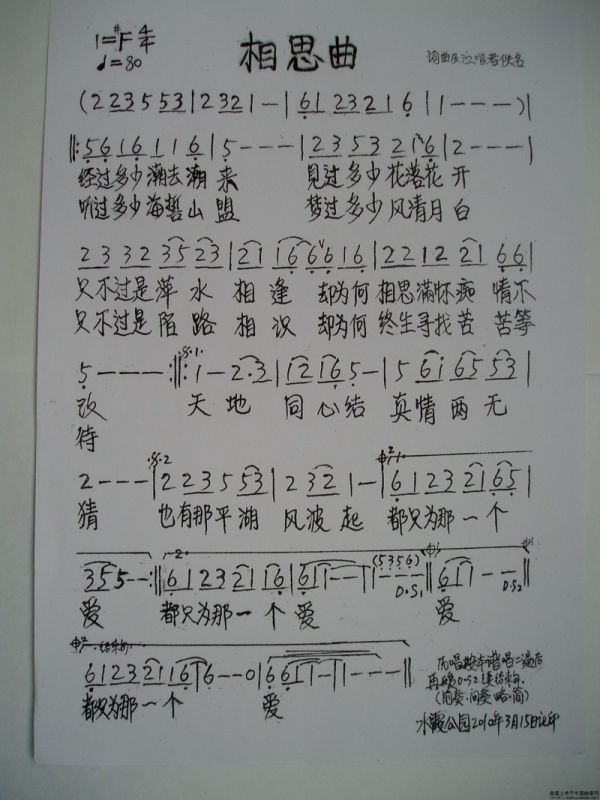 1=#F 4/4
♩=80
相思曲
词曲及泣唱者佚名
(2 23 5 53 | 2 32 1 - | 61 23 21 6 | 1 - - - )|
‖: 56 16 11 6 | 5 - - - | 23 53 21 6 | 2 - - - |
经过多少潮去潮来 见过多少花落花开
听过多少海誓山盟 梦过多少风清月白
23 32 35 23 | 21 16 66 16 | 22 12 21 66 |
只不过是萍水相逢 却为何相思满怀痴情不
只不过是陌路相识 却为何终生寻找苦苦等
5 - - - :‖: 1 - 2·3 | 12 16 5 - | 5 61 65 53 |
改 天地同心结 真情两无
待
2 - - - | 2 23 5 53 | 2 32 1 - | 61 23 21 65 |
猜 也有那平湖风波起 都只为那一个
35 5 - - :‖ 61 23 21 16 | 61 1 - - | 1 - - - ‖ 61 1 - - ‖
(5356)
D.S1 D.S2
爱 都只为那一个爱 爱
结束句
61 23 21 16 | 6 - - 0 | 66 11 - | 1 - - - ‖
都只为那一个 爱
(前奏、间奏略、简)
水霞公园2010年3月15日记印